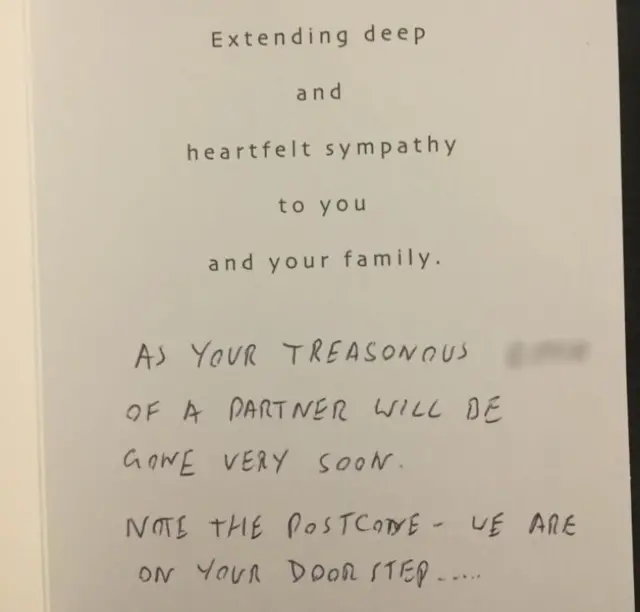 Extending deep
and
heartfelt sympathy
to you
and your family.
AS YOUR TREASONOUS
OF A PARTNER WILL BE
GONE VERY SOON.
NOTE THE POSTCODE - WE ARE
ON YOUR DOORSTEP.....